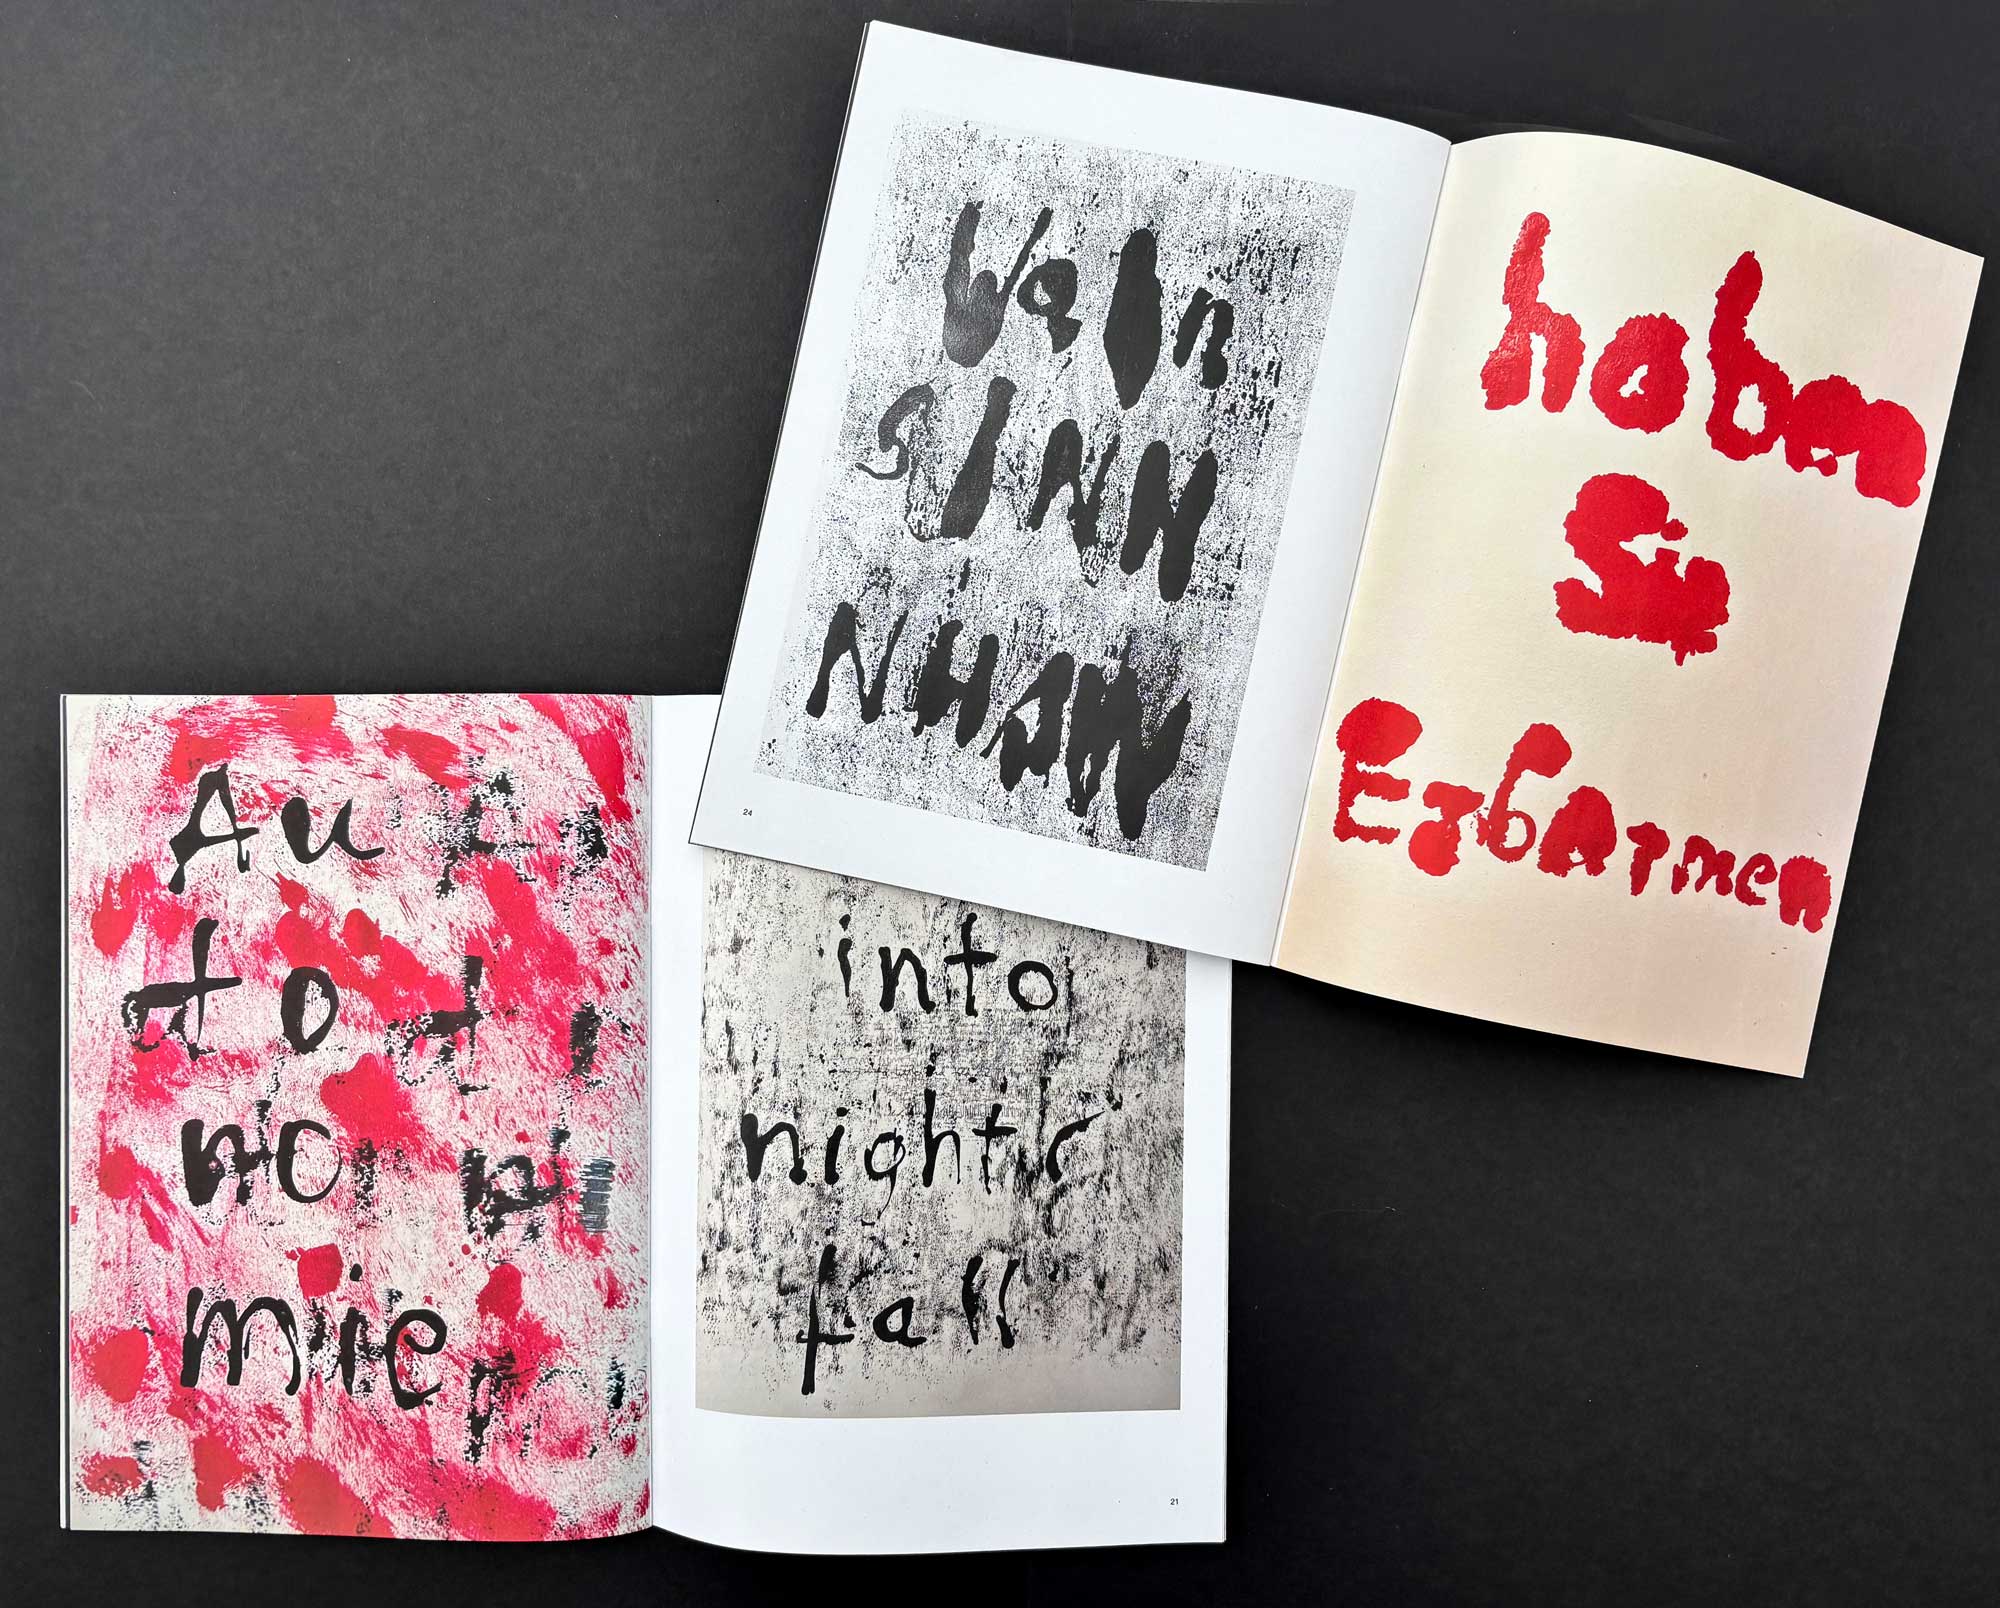 Wain
SINN
NHSM
24
haben
Sie
Erbarmen
Au
to
no
mie
into
night
fall
21